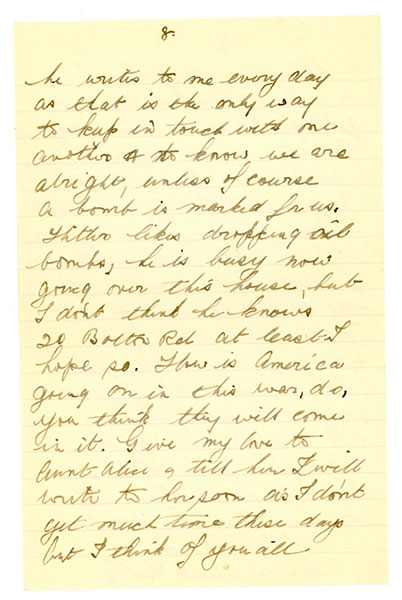 8.
he writes to me every day
as that is the only way
to keep in touch with one
another & to know we are
alright, unless of course
a bomb is marked for us.
Hitler likes dropping oil
bombs, he is busy now
going over this house, but
I don't think he knows
20 Bolton Rd at least I
hope so. How is America
going on in this war, do,
you think they will come
in it. Give my love to
Aunt Alice & tell her I will
write to her soon as I don't
get much time these days
but I think of you all